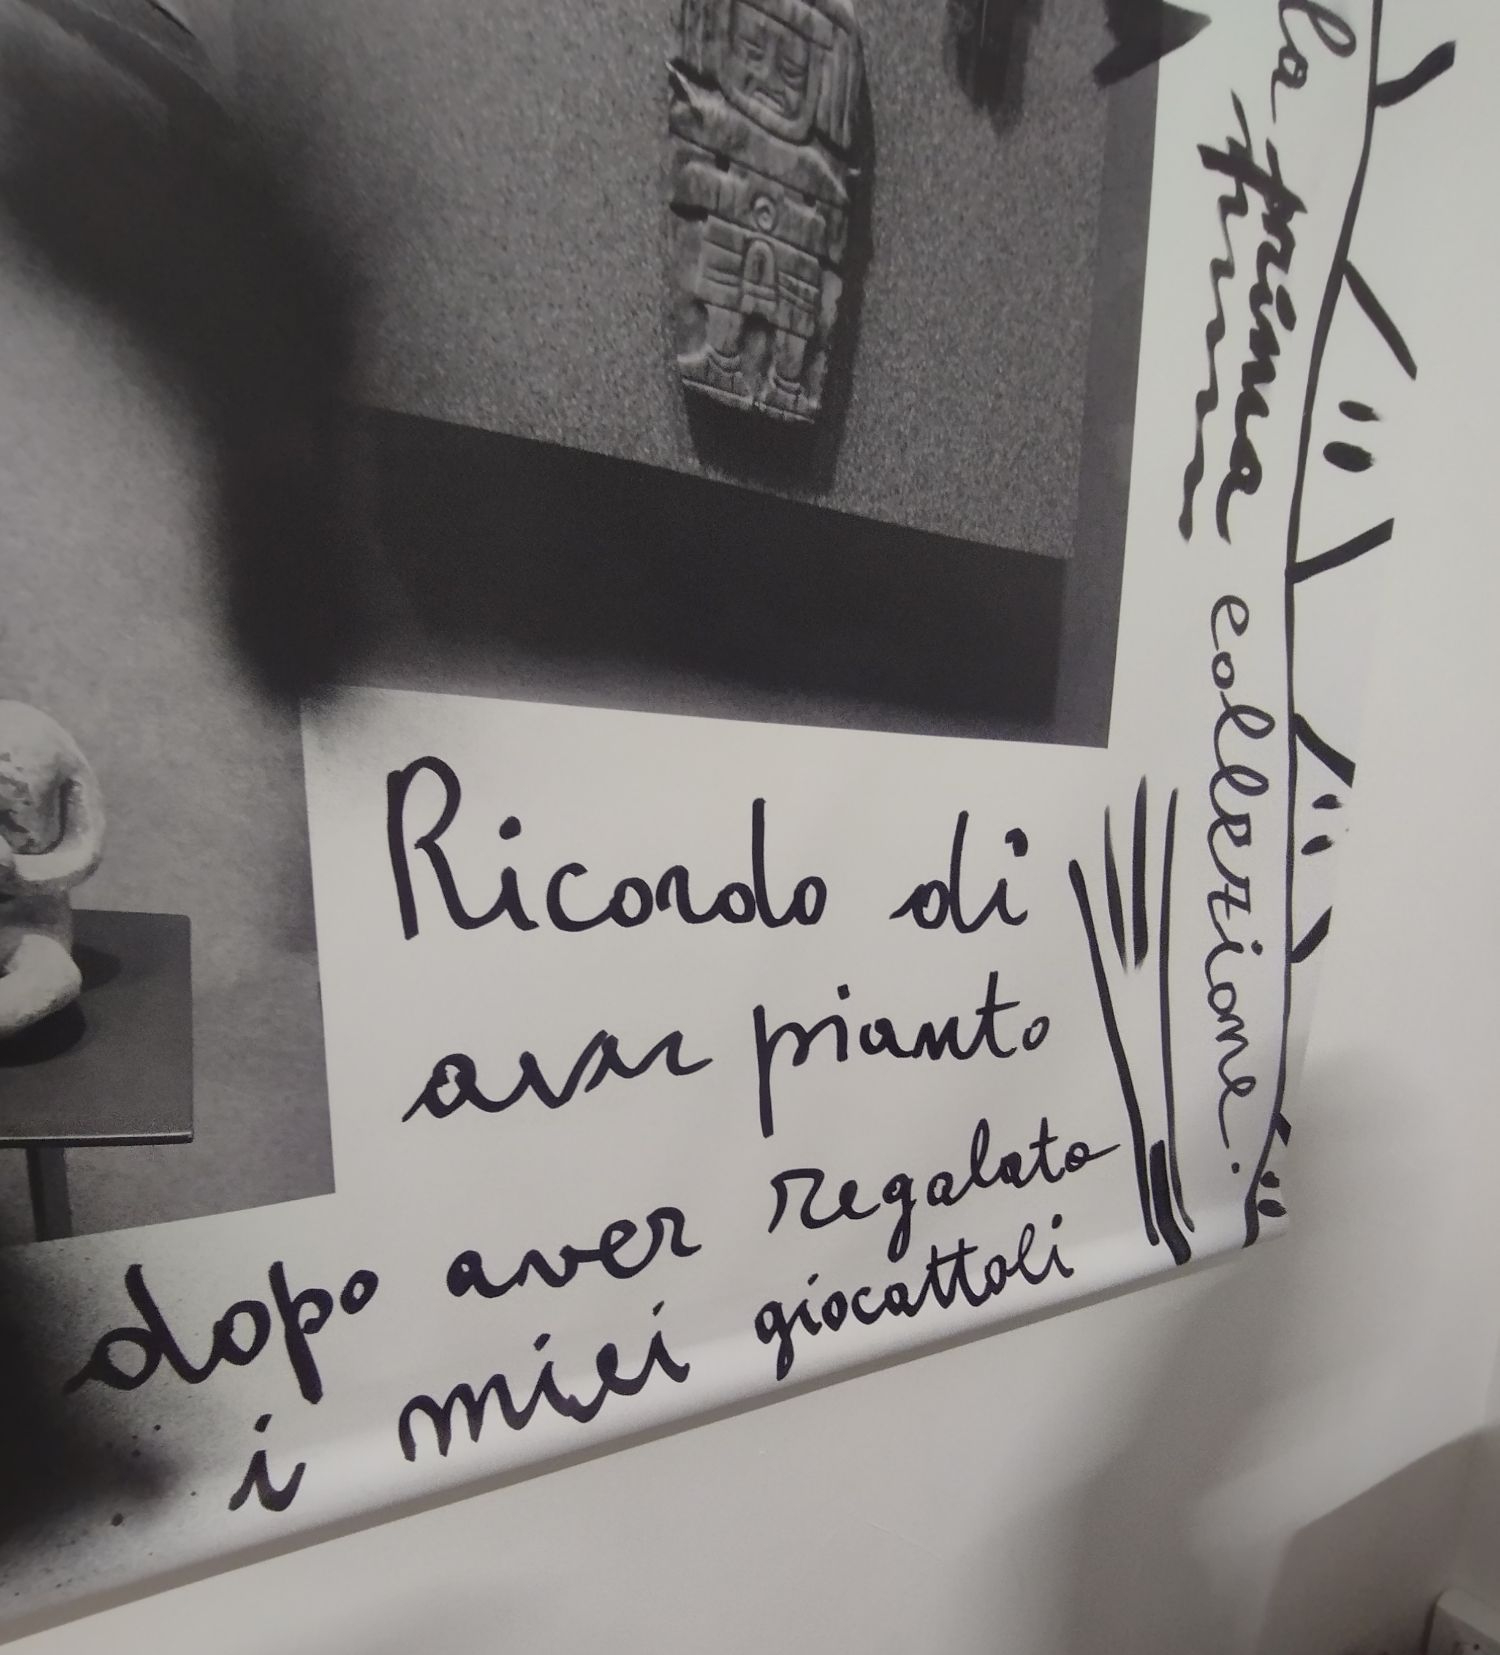 Ricordo di
aver pianto
dopo aver regalato
i miei giocattoli
la prima collezione.